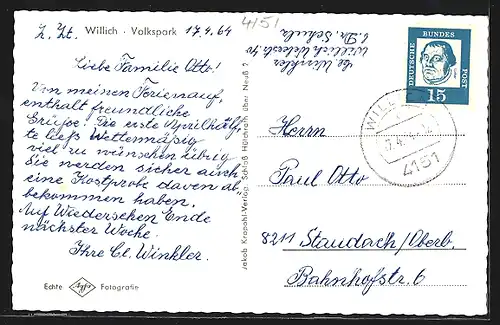 z. Zt. Willich · Volkspark 17.4.64
4151
Liebe Familie Otto!
Von meinen Ferienauf,
enthalt freundliche
Grüße. Die erste Aprilhälf,
te ließ Wettermäßig
viel zu wünschen übrig
Sie werden sicher auch
eine Kostprobe davon ab,
bekommen haben.
Auf Wiedersehen Ende
nächster Woche.
Ihre Cl. Winkler.
Echte Agfa Fotografie
Jakob Krapohl-Verlag, Schloß Hülchrath über Neuß 2
Cl. Winkler
Willich
b. Dr. Schulz
DEUTSCHE BUNDES POST
15
WILLICH
4151
Herrn
Paul Otto
8211 Staudach/Oberb.
Bahnhofstr. 6